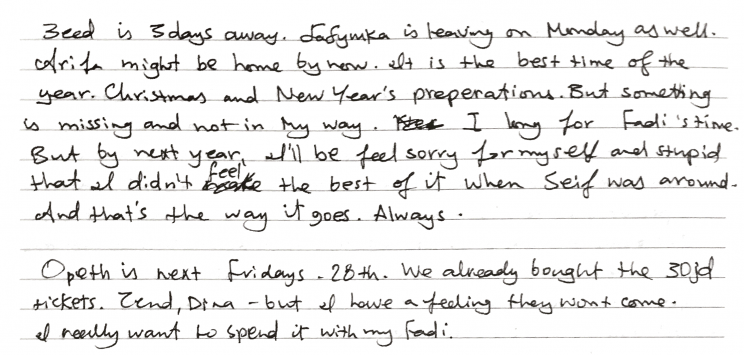 3eed is 3 days away. Safymka is leaving on Monday as well.
Arifa might be home by now. It is the best time of the
year. Christmas and New Year's preperations. But something
is missing and not in my way. I long for Fadi's time.
But by next year, I'll be feel sorry for myself and stupid
that I didn't feel the best of it when Seif was around.
And that's the way it goes. Always.
Opeth is next Fridays. 28th. We already bought the 30jd
tickets. Zend, Dina - but I have a feeling they wont come.
I really want to spend it with my Fadi.